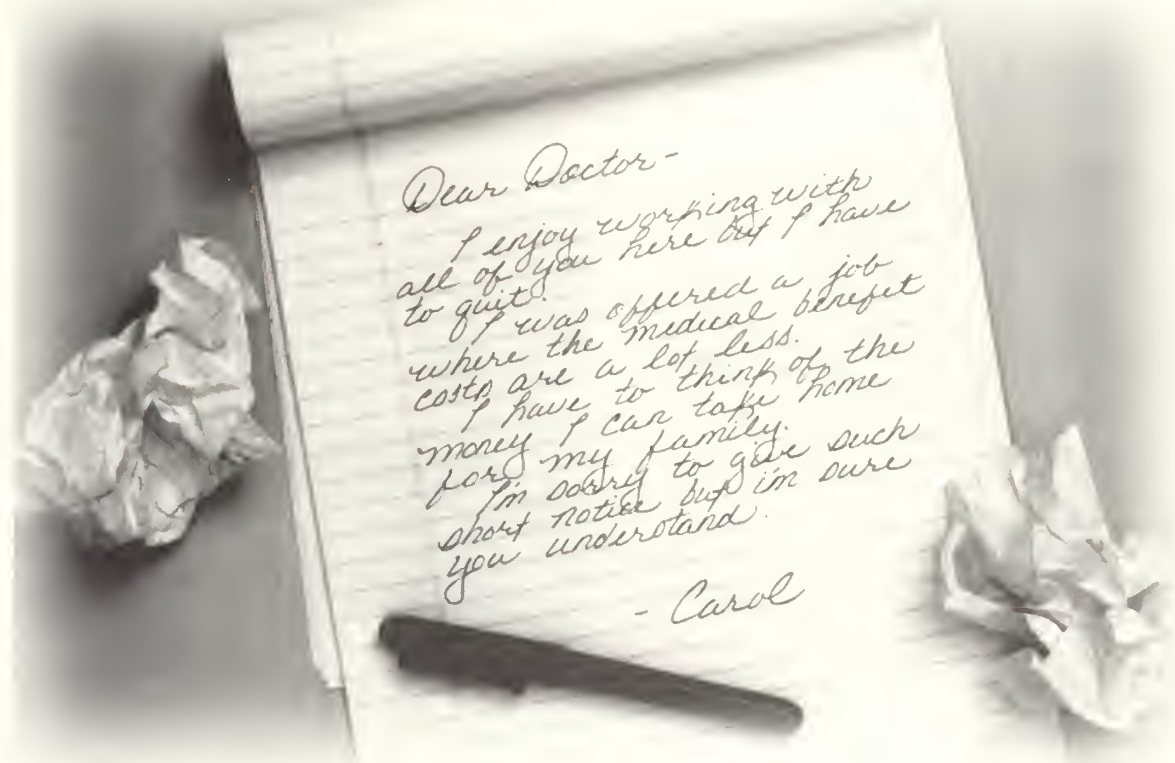 Dear Doctor-
I enjoy working with
all of you here but I have
to quit.
I was offered a job
where the medical benefit
costs are a lot less.
I have to think of the
money I can take home
for my family.
I'm sorry to give such
short notice but i'm sure
you understand.
- Carol